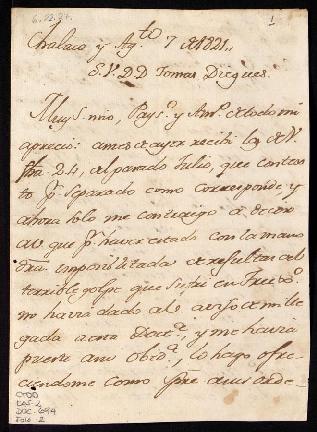 6.22.27.
1
Chalaco y Ag.to 7 de 1821.
S. V. D. D. Tomas Dieguez.
Muy S. mio, Pays.o y Am.o de todo mi
aprecio: antes de ayer recibi la de V.
fha 24, del pasado Julio, que contes
to p.r separado como corresponde y
ahora solo me contraigo a decir
a V que p.r haver estado con la mano
dra. imposibilitada de resultas del
terrible golpe que sufri en
no havia dado a V. aviso de mi lle
gada a esta Doct.a y me havia
puesto a su obed.a, lo hago ofre
ciendome como spre. a sus orde-
DOC. 694
Folio. 2